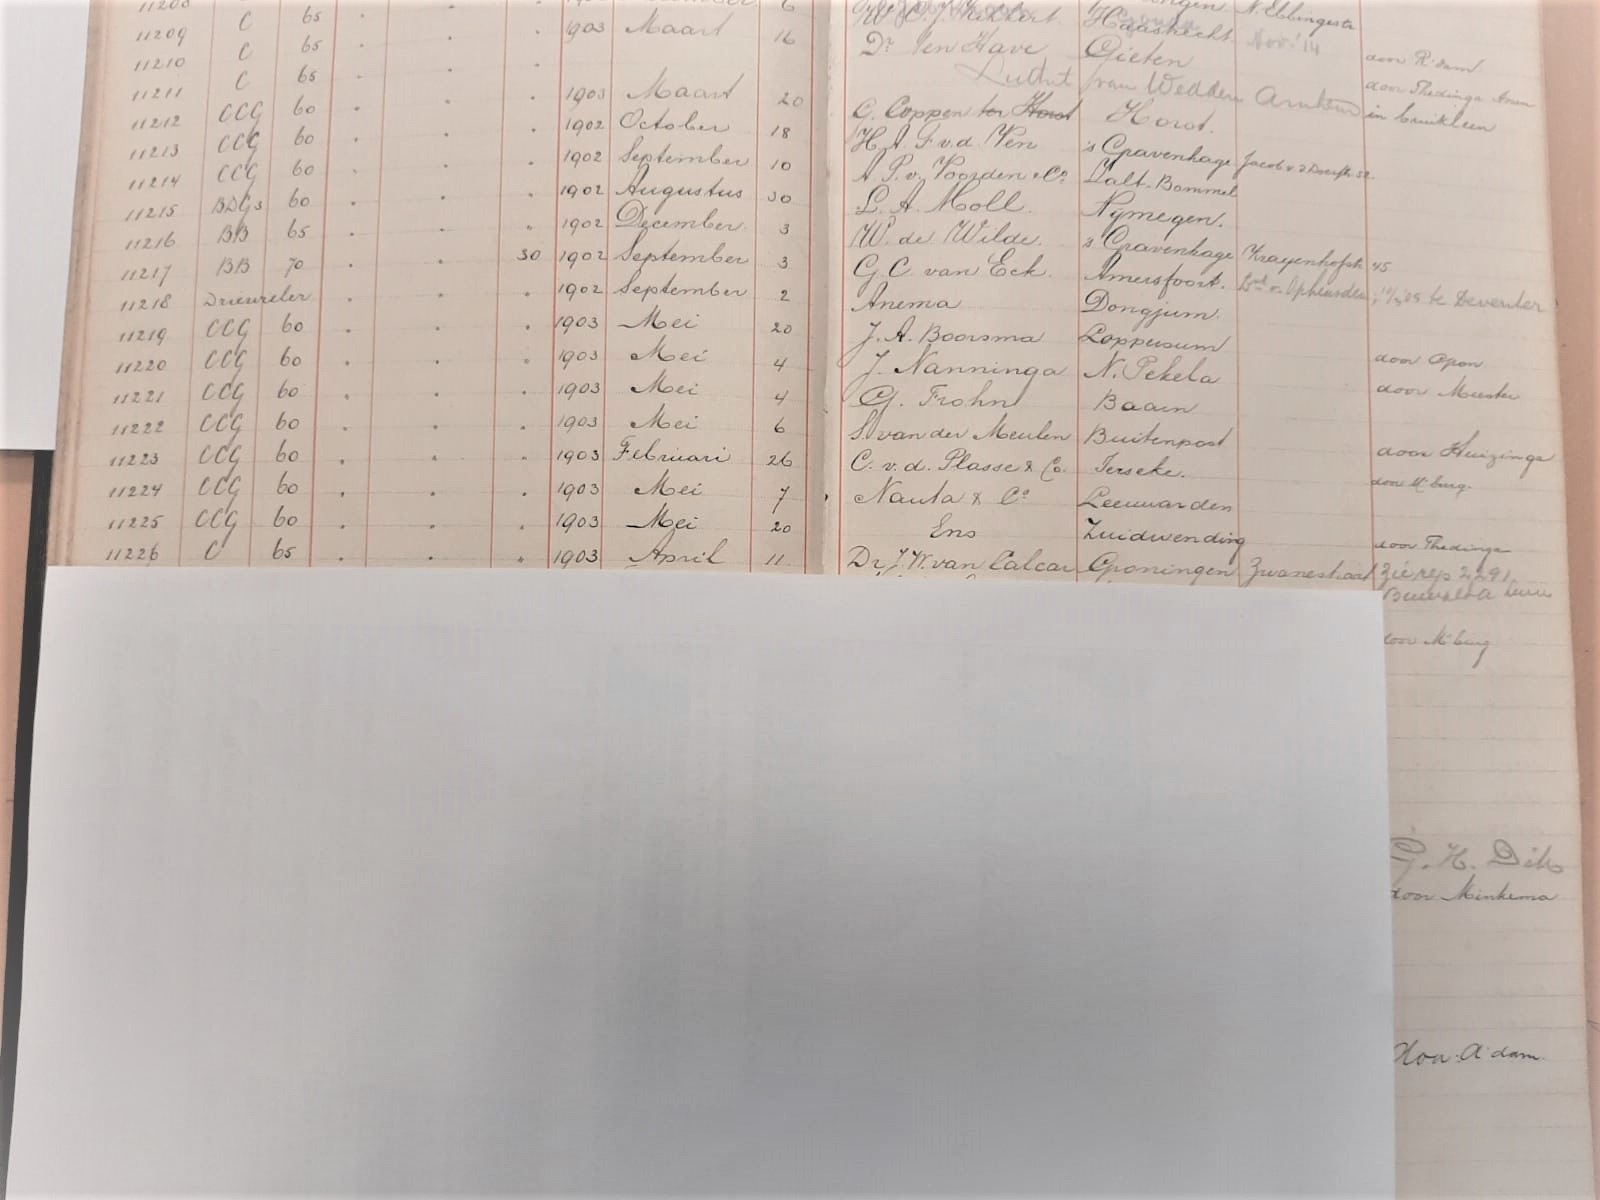 11208 C 65 6 N. Ebbingestr
11209 C 65 . . . 1903 Maart 16 Haastrecht Nov. '14 door R'dam
11210 C 65 . . . Dr ten Have Gieten door Thedinga
van Wedden
11211 C 65 . . . 1903 Maart 20 C. Coppen ter Horst Horst. in
11212 CCG 60 . . . 1902 October 18 H. A. F. v. d. Ven 's Gravenhage
11213 CCG 60 . . . 1902 September 10 A. P. v. Voorden & Co Zalt-Bommel
11214 CCG 60 . . . 1902 Augustus 30 L. A. Moll. Nijmegen.
11215 BDGs 60 . . " 1902 December 3 W. de Wilde. 's Gravenhage Krayenhofstr 45
11216 BB 65 . . . 1902 September 3 G. C. van Eck. Amersfoort. te Deventer
11217 BB 70 . . 30 1902 September 2 Anema Dongjum.
11218 Driewieler
11219 CCG 60 . . . 1903 Mei 20 J. A. Boorsma Loppersum door Opon
11220 CCG 60 . . " 1903 Mei 4 J. Nanninga N. Pekela door Meester
11221 CCG 60 . . . 1903 Mei 4 G. Frohn Baarn
11222 CCG 60 . . . 1903 Mei 6 S. van der Meulen Buitenpost door Huizinga
11223 CCG 60 . . " 1903 Februari 26 C. v. d. Plasse & Co. Ierseke. door M'burg.
11224 CCG 60 . . . 1903 Mei 7 Nauta & Co Leeuwarden
11225 CCG 60 . . . 1903 Mei 20 Ens Zuidwending door Thedinga
11226 C 65 . . " 1903 April 11 Dr. J. W. van Calcar Groningen Zwanestraat Zie rep 2291
door M'burg
G. H. Dik
door Minkema
door A'dam.